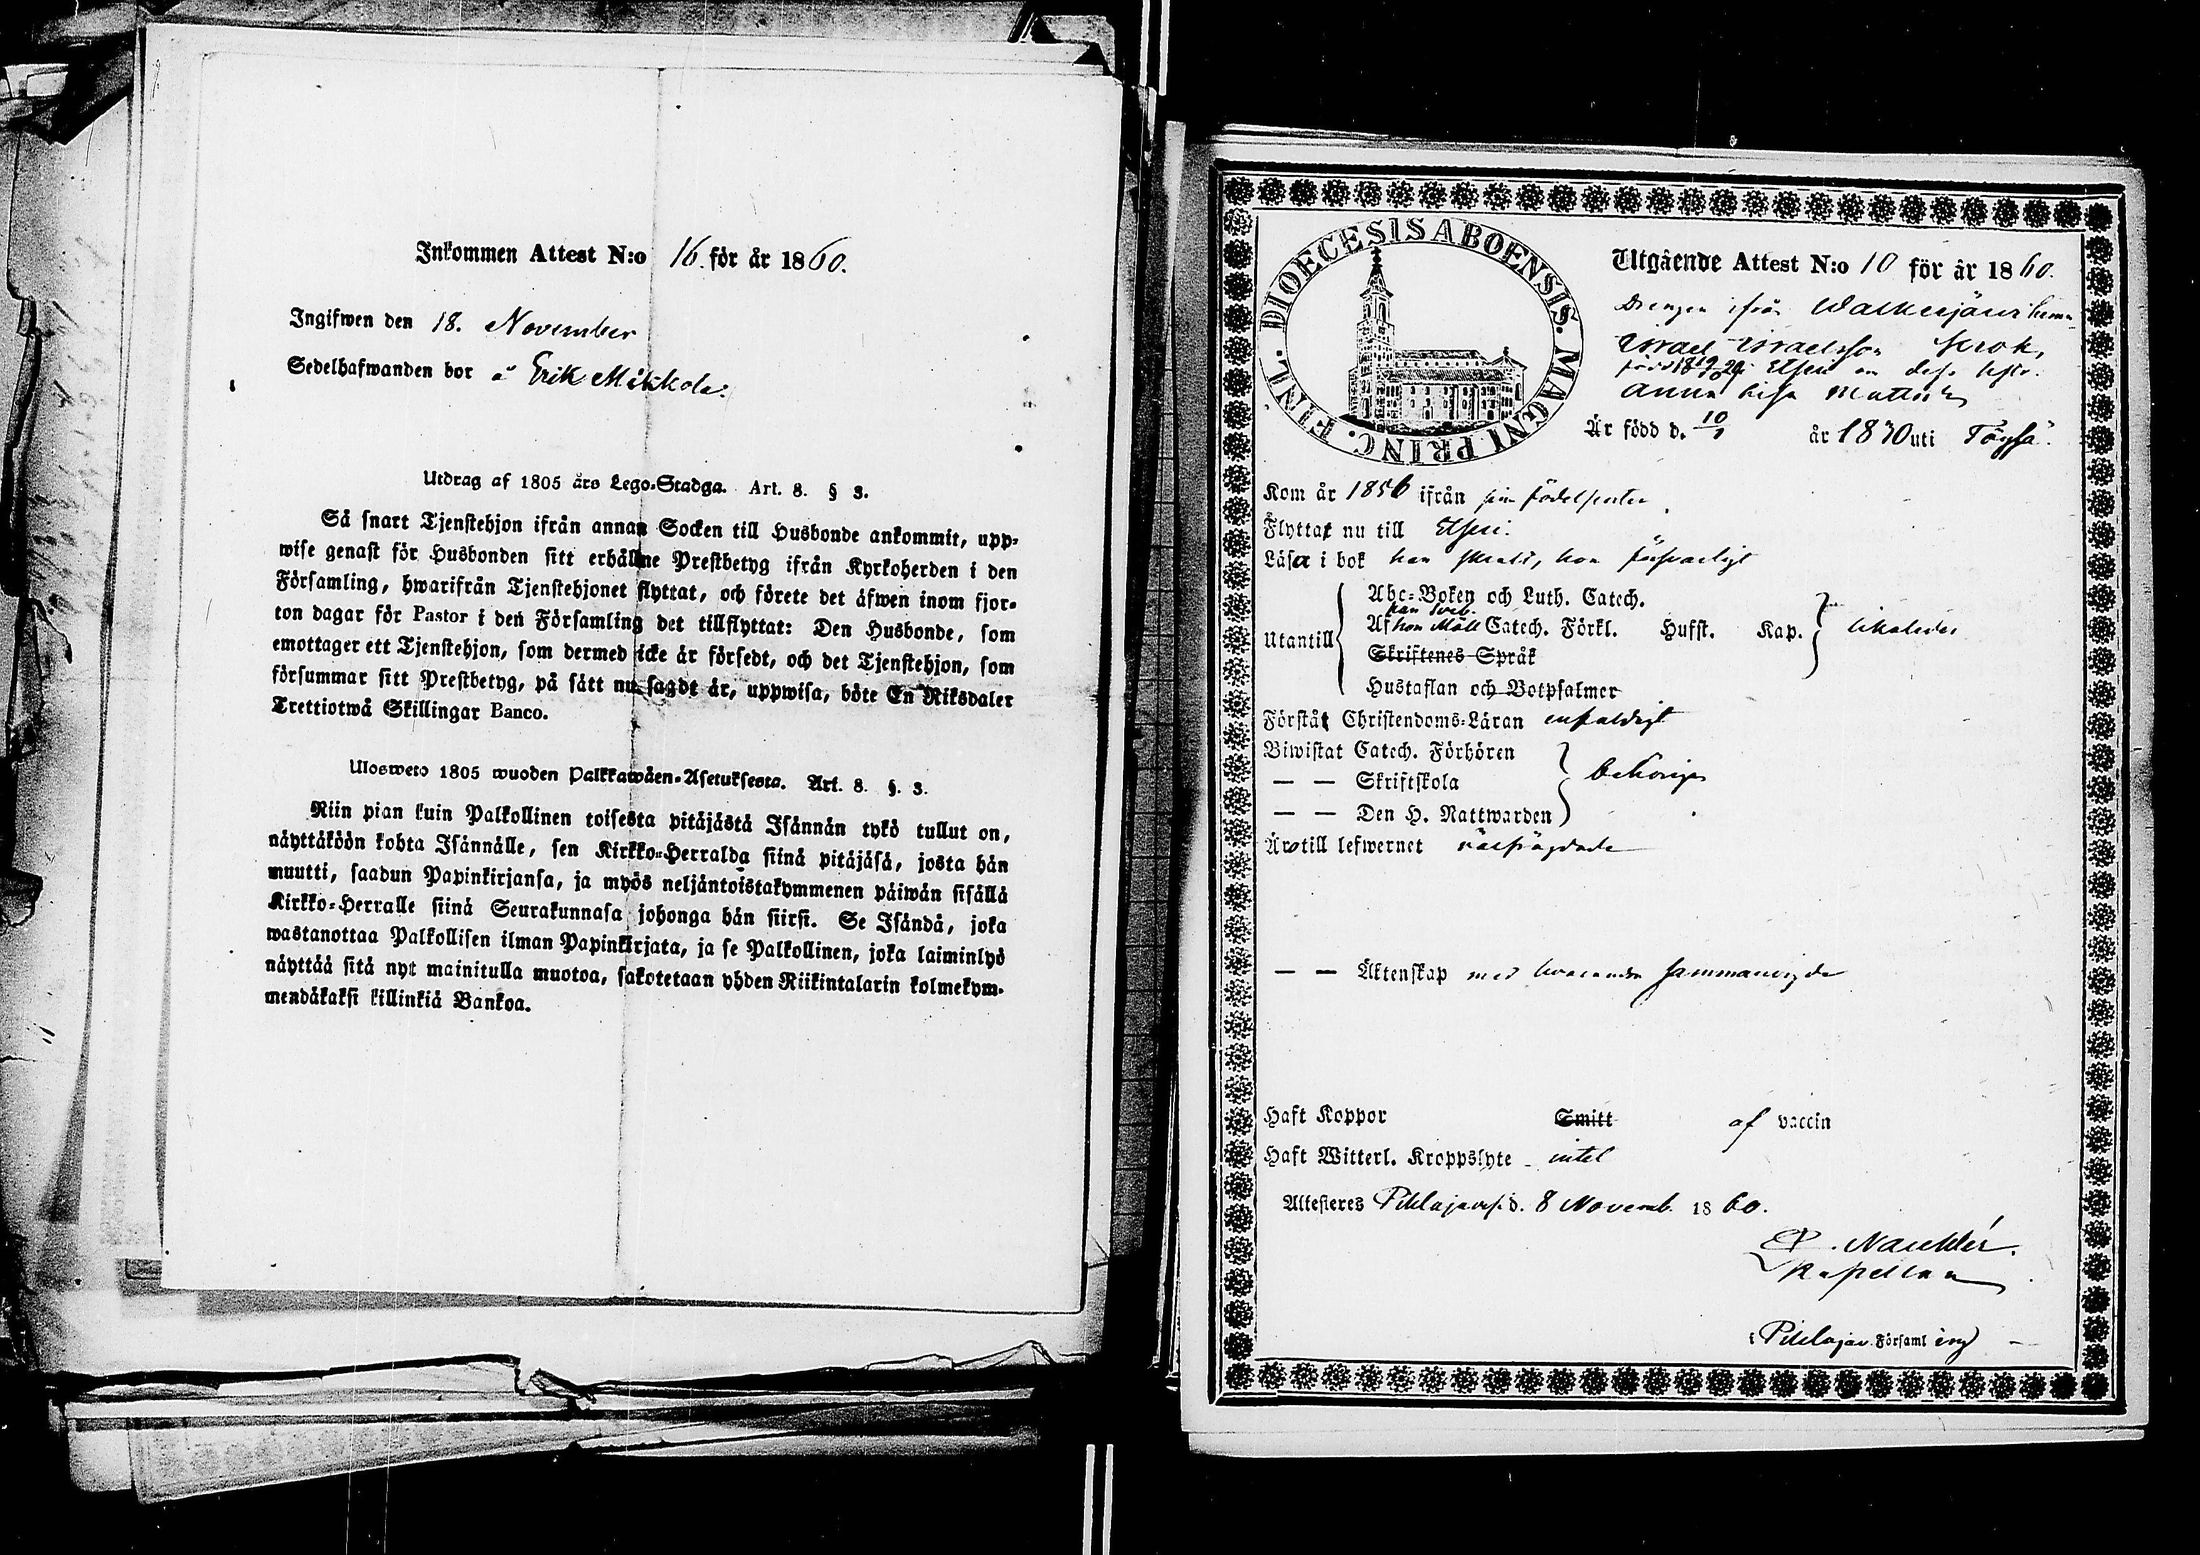 Inkommen Attest N:o 16. för år 1860.
Ingifwen den 18. November
Sedelhafwanden bor å Erik Mäkkola.
Utdrag af 1805 års Lego-Stadga. Art. 8. § 3.
Så snart Tjenstehjon ifrån annan Socken till Husbonde ankommit, upp-
wise genast för Husbonden sitt erhållne Prestbetyg ifrån Kyrkoherden i den
Församling, hwarifrån Tjenstehjonet flyttat, och förete det äfwen inom fjor-
ton dagar för Pastor i den Församling det tillflyttat: Den Husbonde, som
emottager ett Tjenstehjon, som dermed icke är försedt, och det Tjenstehjon, som
försummar sitt Prestbetyg, på sätt nu sagdt är, uppwisa, böte En Riksdaler
Trettiotwå Skillingar Banco.
Ulosweto 1805 wuoden Palkkawäen-Asetuksesta. Art. 8. §. 3.
Niin pian kuin Palkollinen toisesta pitäjästä Isännän tykö tullut on,
näyttäköön kohta Isännälle, sen Kirkko-Herralda siinä pitäjäsä, josta hän
muutti, saadun Papinkirjansa, ja myös neljäntoistakymmenen päiwän sisällä
Kirkko-Herralle siinä Seurakunnasa johonga hän siirsi. Se Isändä, joka
wastanottaa Palkollisen ilman Papinkirjata, ja se Palkollinen, joka laiminlyö
näyttää sitä nyt mainitulla muotoa, sakotetaan yhden Riikintalarin kolmekym-
mendäkaksi killinkiä Bankoa.
DIOECESIS ABOENSIS. MAGNI PRINC. FINL.
Utgående Attest N:o 10 för år 1860.
Drengen ifrån Walkeajärvi hemn
Israel Israelsson Krok,
född 1819 Etseri en dess hustr.
Anna Lisa Mattsdr
Är född d. 10/1 år 1830 uti Töysä.
Kom år 1856 ifrån sin födelseort
Flyttar nu till Etseri.
Läsa i bok han , hon försvarligt
Abc-Boken och Luth. Catech.
han Sveb.
Utantill Af hon Möll Catech. Förkl. Husst. Kap. likaledes
Skriftenes Språk
Hustaflan och Botpsalmer
Förstår Christendoms-Läran enfaldigt
Biwistat Catech. Förhören
— — Skriftskola behörigen
— — Den H. Nattwarden
Äro till lefwernet oäfrägdade
— — Äktenskap med hvarandra sammanvigde
Haft Koppor Smitt af vaccin
Haft Witterl. Kroppslyte intet
Attesteres Pihlajavesi d. 8 Novemb. 1860.
Nauklér.
Kapellan
i Pihlajav. Församling